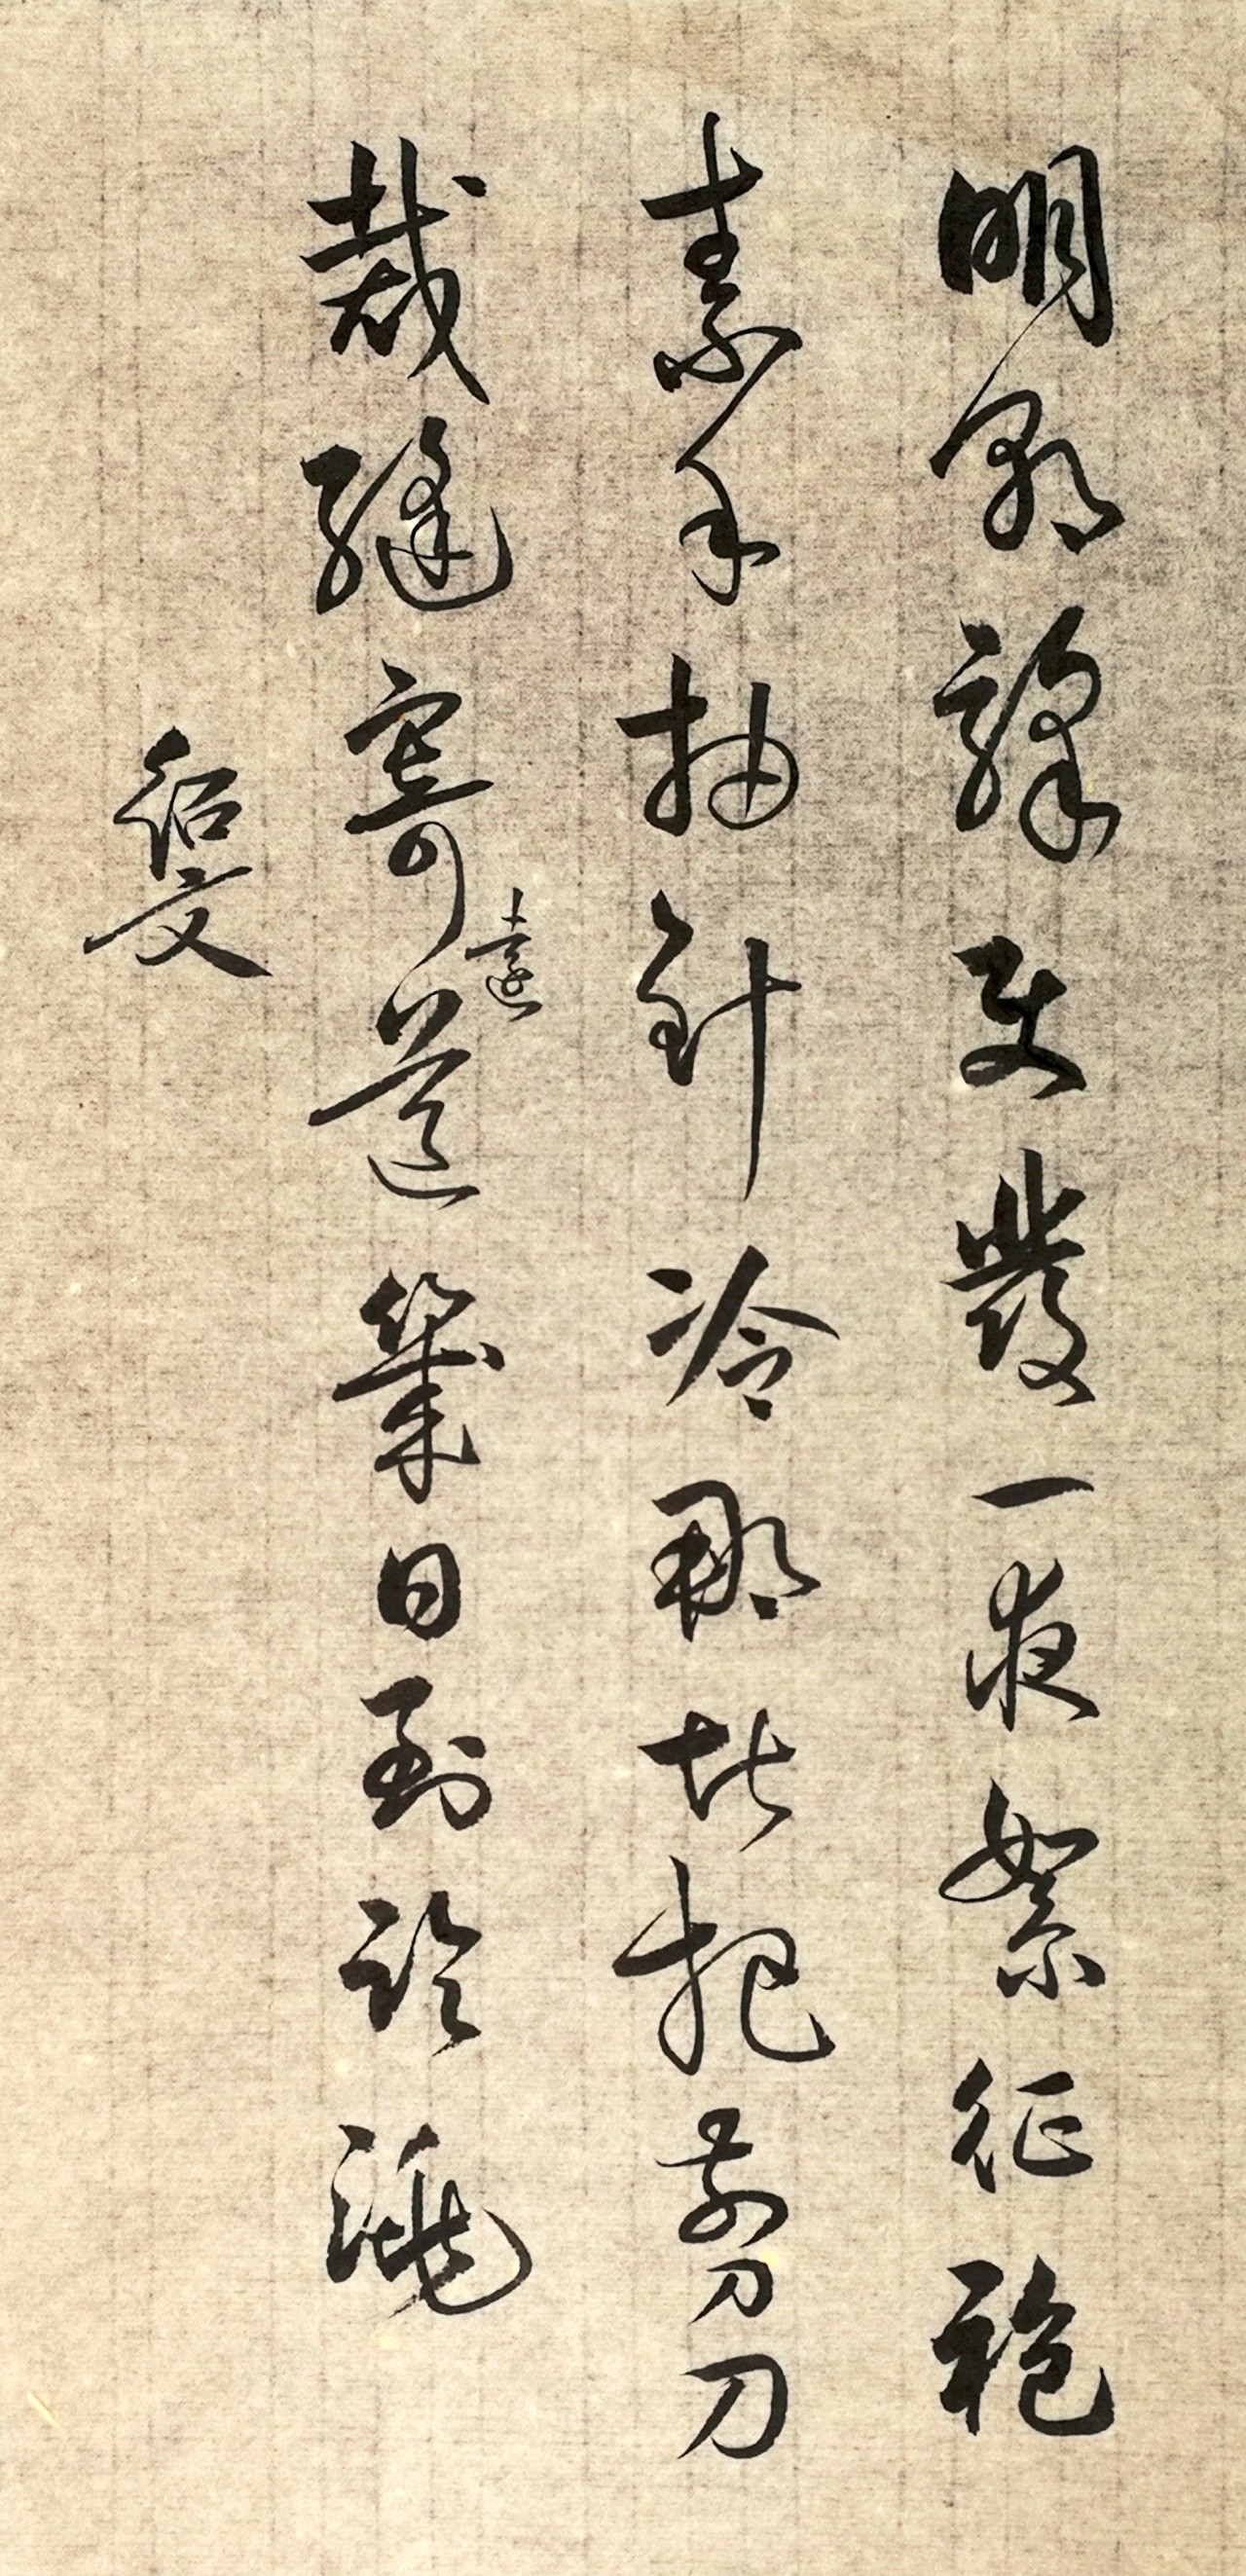 明朝驛使發一夜絮征袍
素手抽針冷那堪把剪刀
裁縫寄遠道幾日到臨洮
紹文